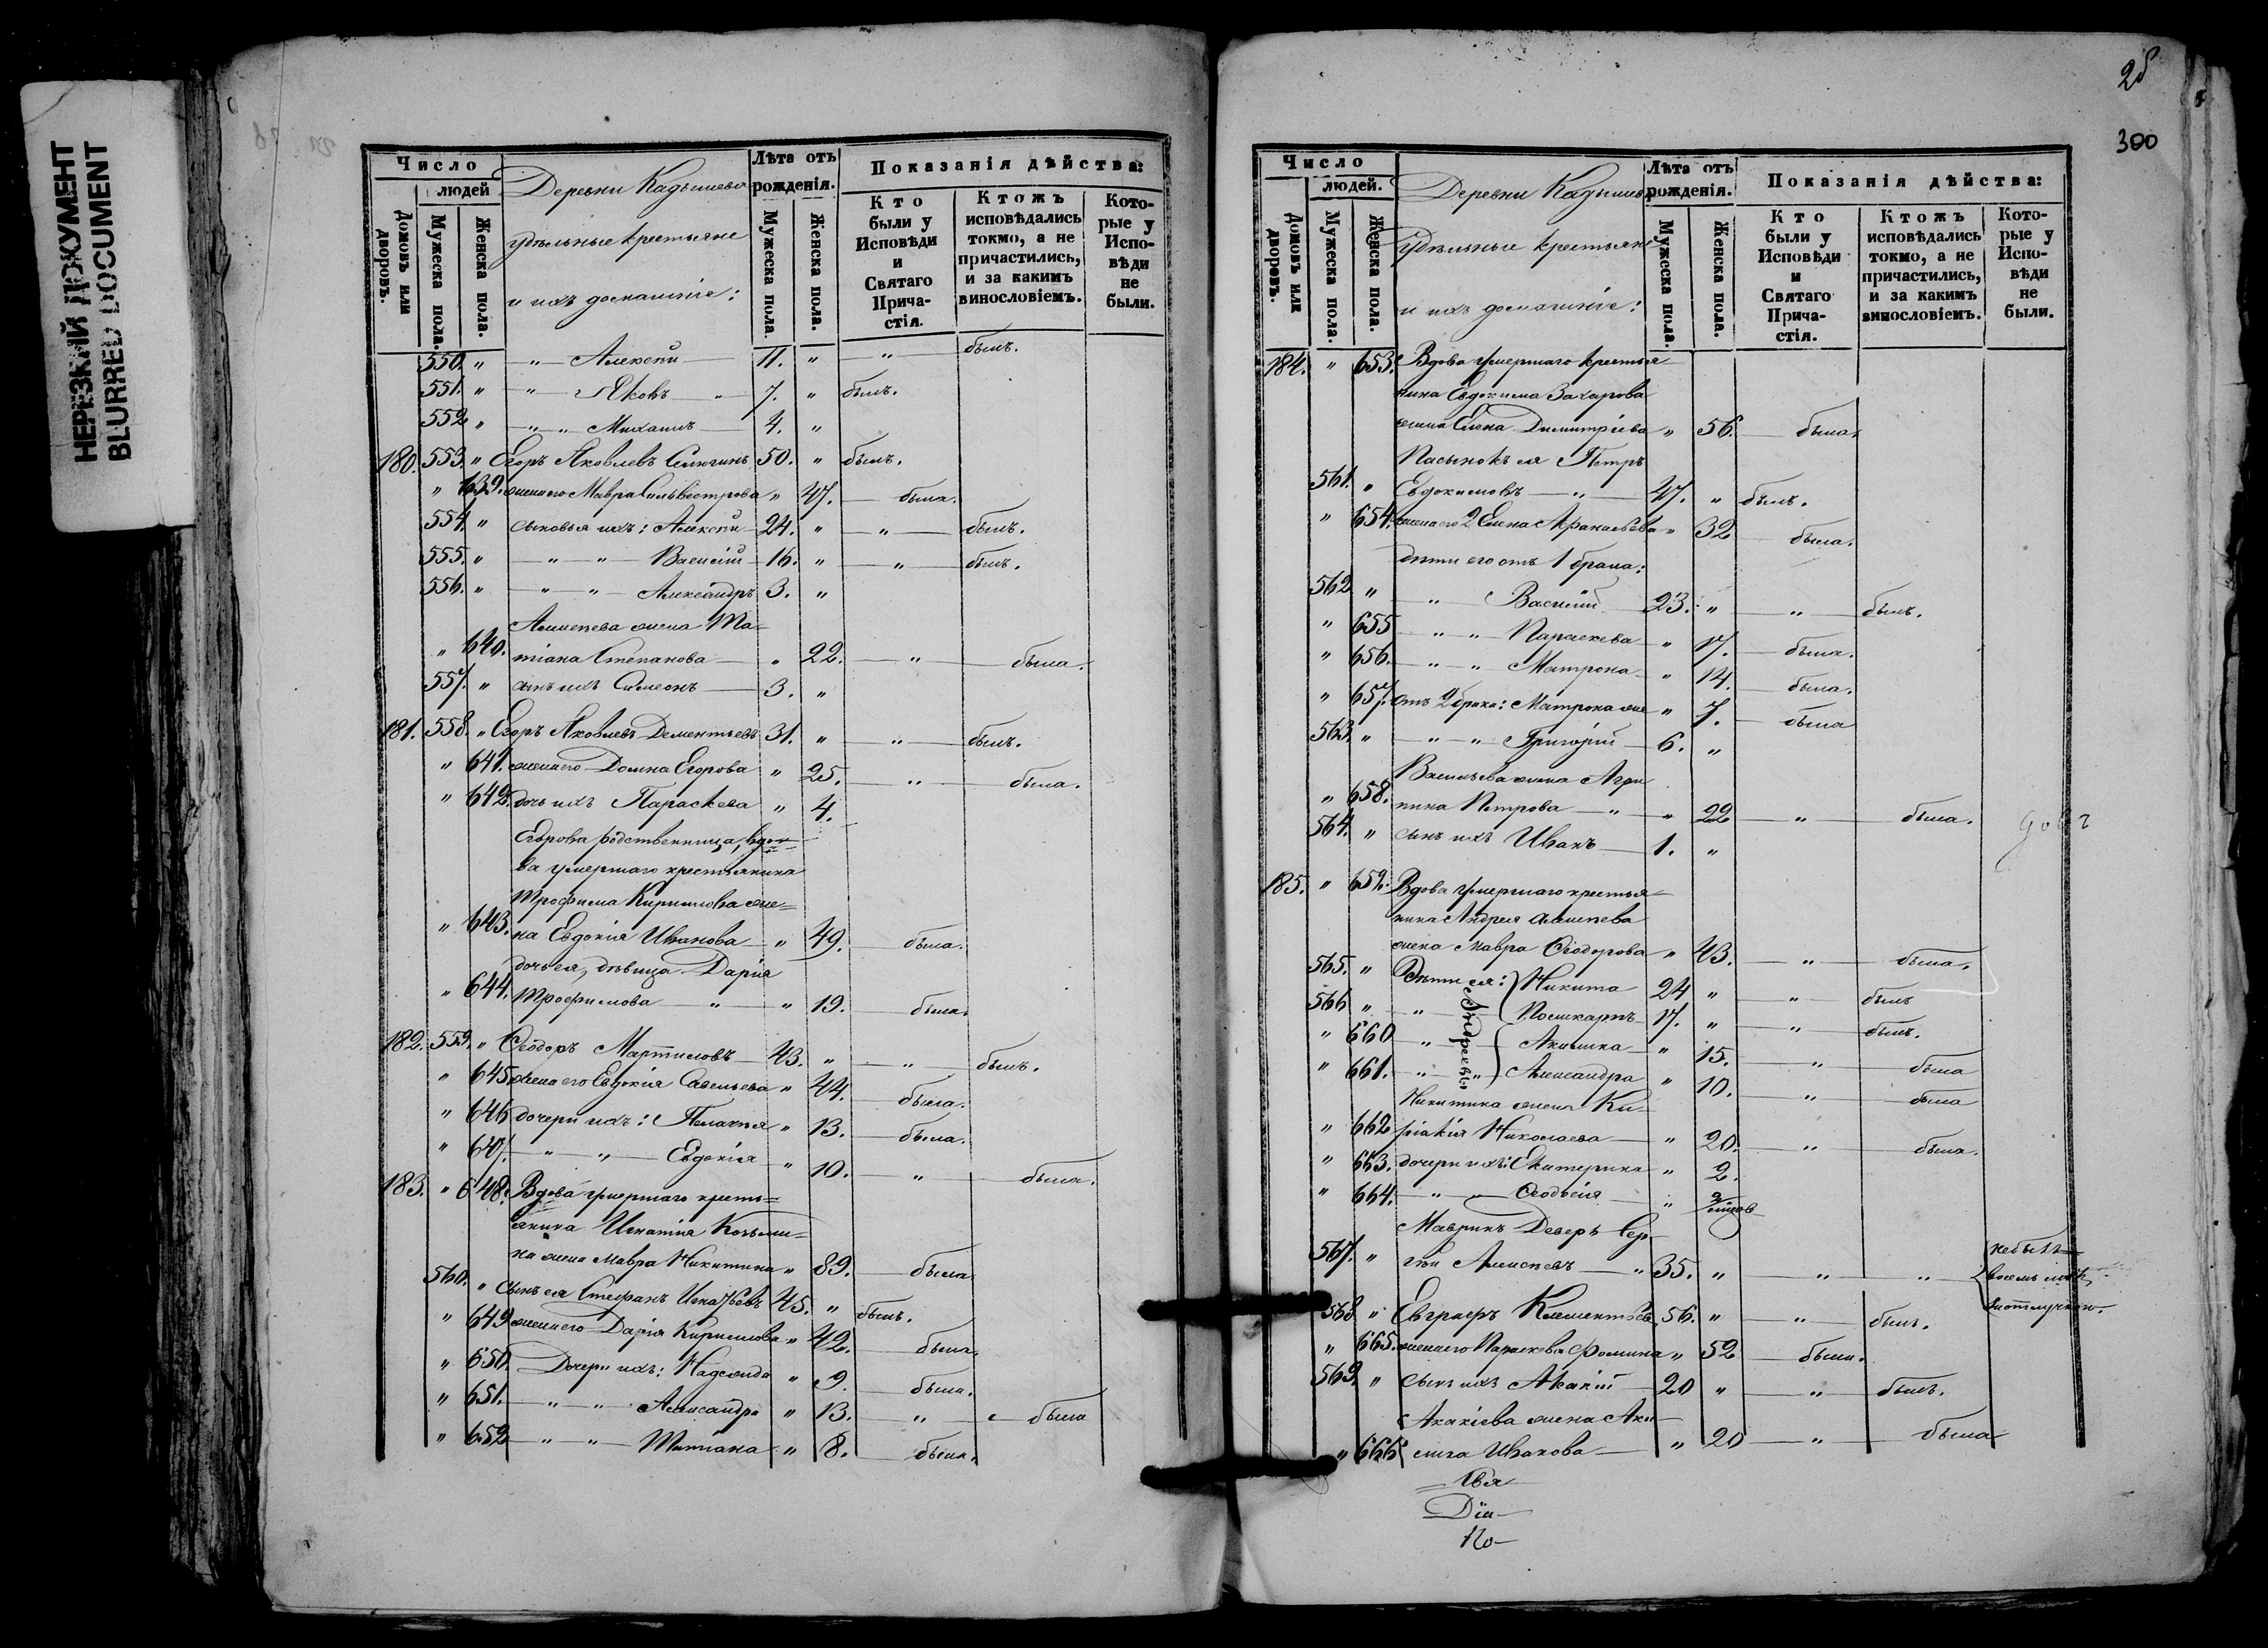 НЕРЕЗКИЙ ДОКУМЕНТ
BLURRED DOCUMENT
Число
людей
Домовъ или дворовъ.
Мужеска пола.
Женска пола.
Деревни Кадышева
удѣльные крестьяне
и ихъ домашніе:
Лѣта отъ рожденія.
Мужеска пола.
Женска пола.
Показанія дѣйства:
Кто были у Исповѣди и Святаго Прича-стія.
Ктожъ исповѣдались токмо, а не причастились, и за какимъ винословіемъ.
Кото-рые у Испо-вѣди не были.
550. " " Алексѣй 11. " " былъ.
551. " " Яковъ " 7. " былъ.
552 " " " Михаилъ 4. "
180. 553. " Егоръ Яковлевъ 50. " былъ.
" 639. жена его Мавра Сильвестрова " 47. была.
554. " сыновья ихъ: Алексѣй 24. " " былъ.
555. " " " Василій 16. " " былъ.
556. " " " Александръ 3. "
Алексѣева жена Та-
" 640. тіана Степанова " 22. " была.
557. " сынъ ихъ Симеонъ 3. "
181. 558. " Егоръ Яковлевъ Дементьевъ 31. " " былъ.
" 641. жена его Домна Егорова " 25. " была.
" 642. дочь ихъ Параскева " 4.
Егорова родственница, вдо-
ва умершаго крестьянина
Трофима Кирилова же-
" 643. на Евдокія Иванова " 49. была.
дочь ея, дѣвица Дарія
" 644. Трофимова " " 19. была.
182. 559. " Ѳеодоръ Мартиновъ 43. " " былъ.
" 645 жена его Евдокія Савельева " 44. была.
" 646 дочери ихъ: Пелагія " 13. была.
" 647. " " Евдокія " 10. " была.
183. " 648. Вдова умершаго кресть-
янина Игнатія Козьми-
на жена Мавра Никитина " 89. была
560. " Сынъ ея Стефанъ Игнатьевъ 45. " былъ.
" 649 жена его Дарія Кирилова " 42. была.
" 650. Дочери ихъ: Надежда " 9. была.
" 651. " " Александра " 13. " была
" 652 " " Татіана " 8. была.
28
300
Число
людей.
Домовъ или дворовъ.
Мужеска пола.
Женска пола.
Деревни Кадышева
удѣльные крестьяне
и ихъ домашніе:
Лѣта отъ рожденія.
Мужеска пола.
Женска пола.
Показанія дѣйства:
Кто были у Исповѣди и Святаго Прича-стія.
Ктожъ исповѣдались токмо, а не причастились, и за какимъ винословіемъ.
Кото-рые у Испо-вѣди не были.
184. " 653. Вдова умершаго крестья-
нина Евдокима Захарова
жена Елена Димитріева " 56. была.
Пасынокъ ея Петръ
561. " Евдокимовъ " 47. " былъ.
" 654. жена его 2 Елена Афанасьева " 32 была.
дѣти его отъ 1 брака:
562 " " Василій 23. " " былъ.
" 655 " " Параскева " 17. была.
" 656. " " Матрона " 14. была.
" 657. отъ 2 брака: Матрона " 7. была
563. " " " Григорій 6. "
Васильева жена Агри-
" 658. пина Петрова " " 22 " была.
564. " сынъ ихъ Иванъ 1. "
185. " 659. Вдова умершаго крестья-
нина Андрея Алексѣева
жена Мавра Ѳеодорова " 43. " была.
565. " Дѣти ея: Никита 24 " " былъ
566 " " Поликарпъ 17. " " былъ.
Андреевы
" 660 " Акилина " 15. " была
" 661. " " Александра " 10. " была
Никитина жена Ки-
" 662 ріакія Николаева " 20. " была.
" 663. дочери ихъ: Екатерина " 2.
" 664. " " Ѳеодосія "
Маврина Деверь Сер-
567. " гѣй Алексѣевъ " 35. " " " небылъ
568 " Евграфъ Климентьевъ 56. " " былъ.
" 665. жена его Параскева Фомина " 52 была.
569. " Сынъ ихъ Акакій 20 " " былъ.
Акакіева жена Аки-
" 666 лина Иванова " 20 " была